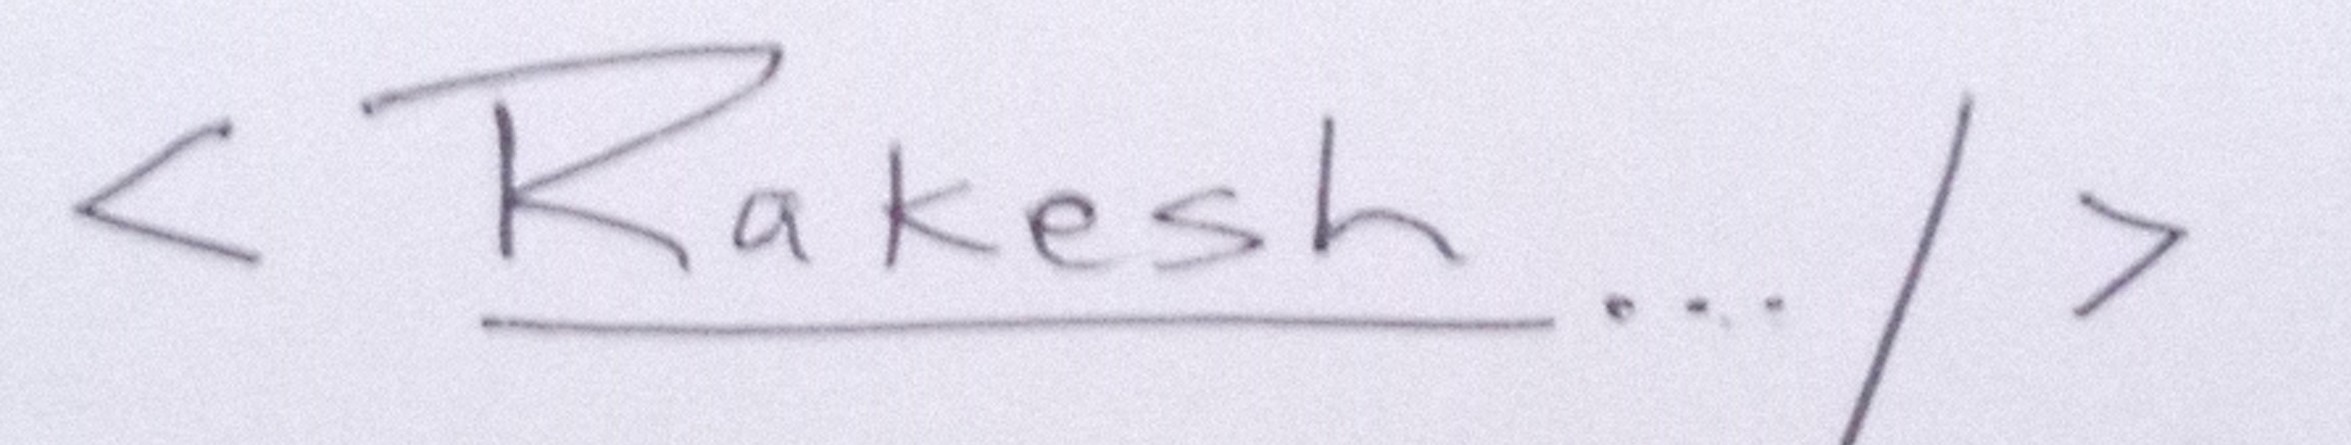 < Rakesh ... / >